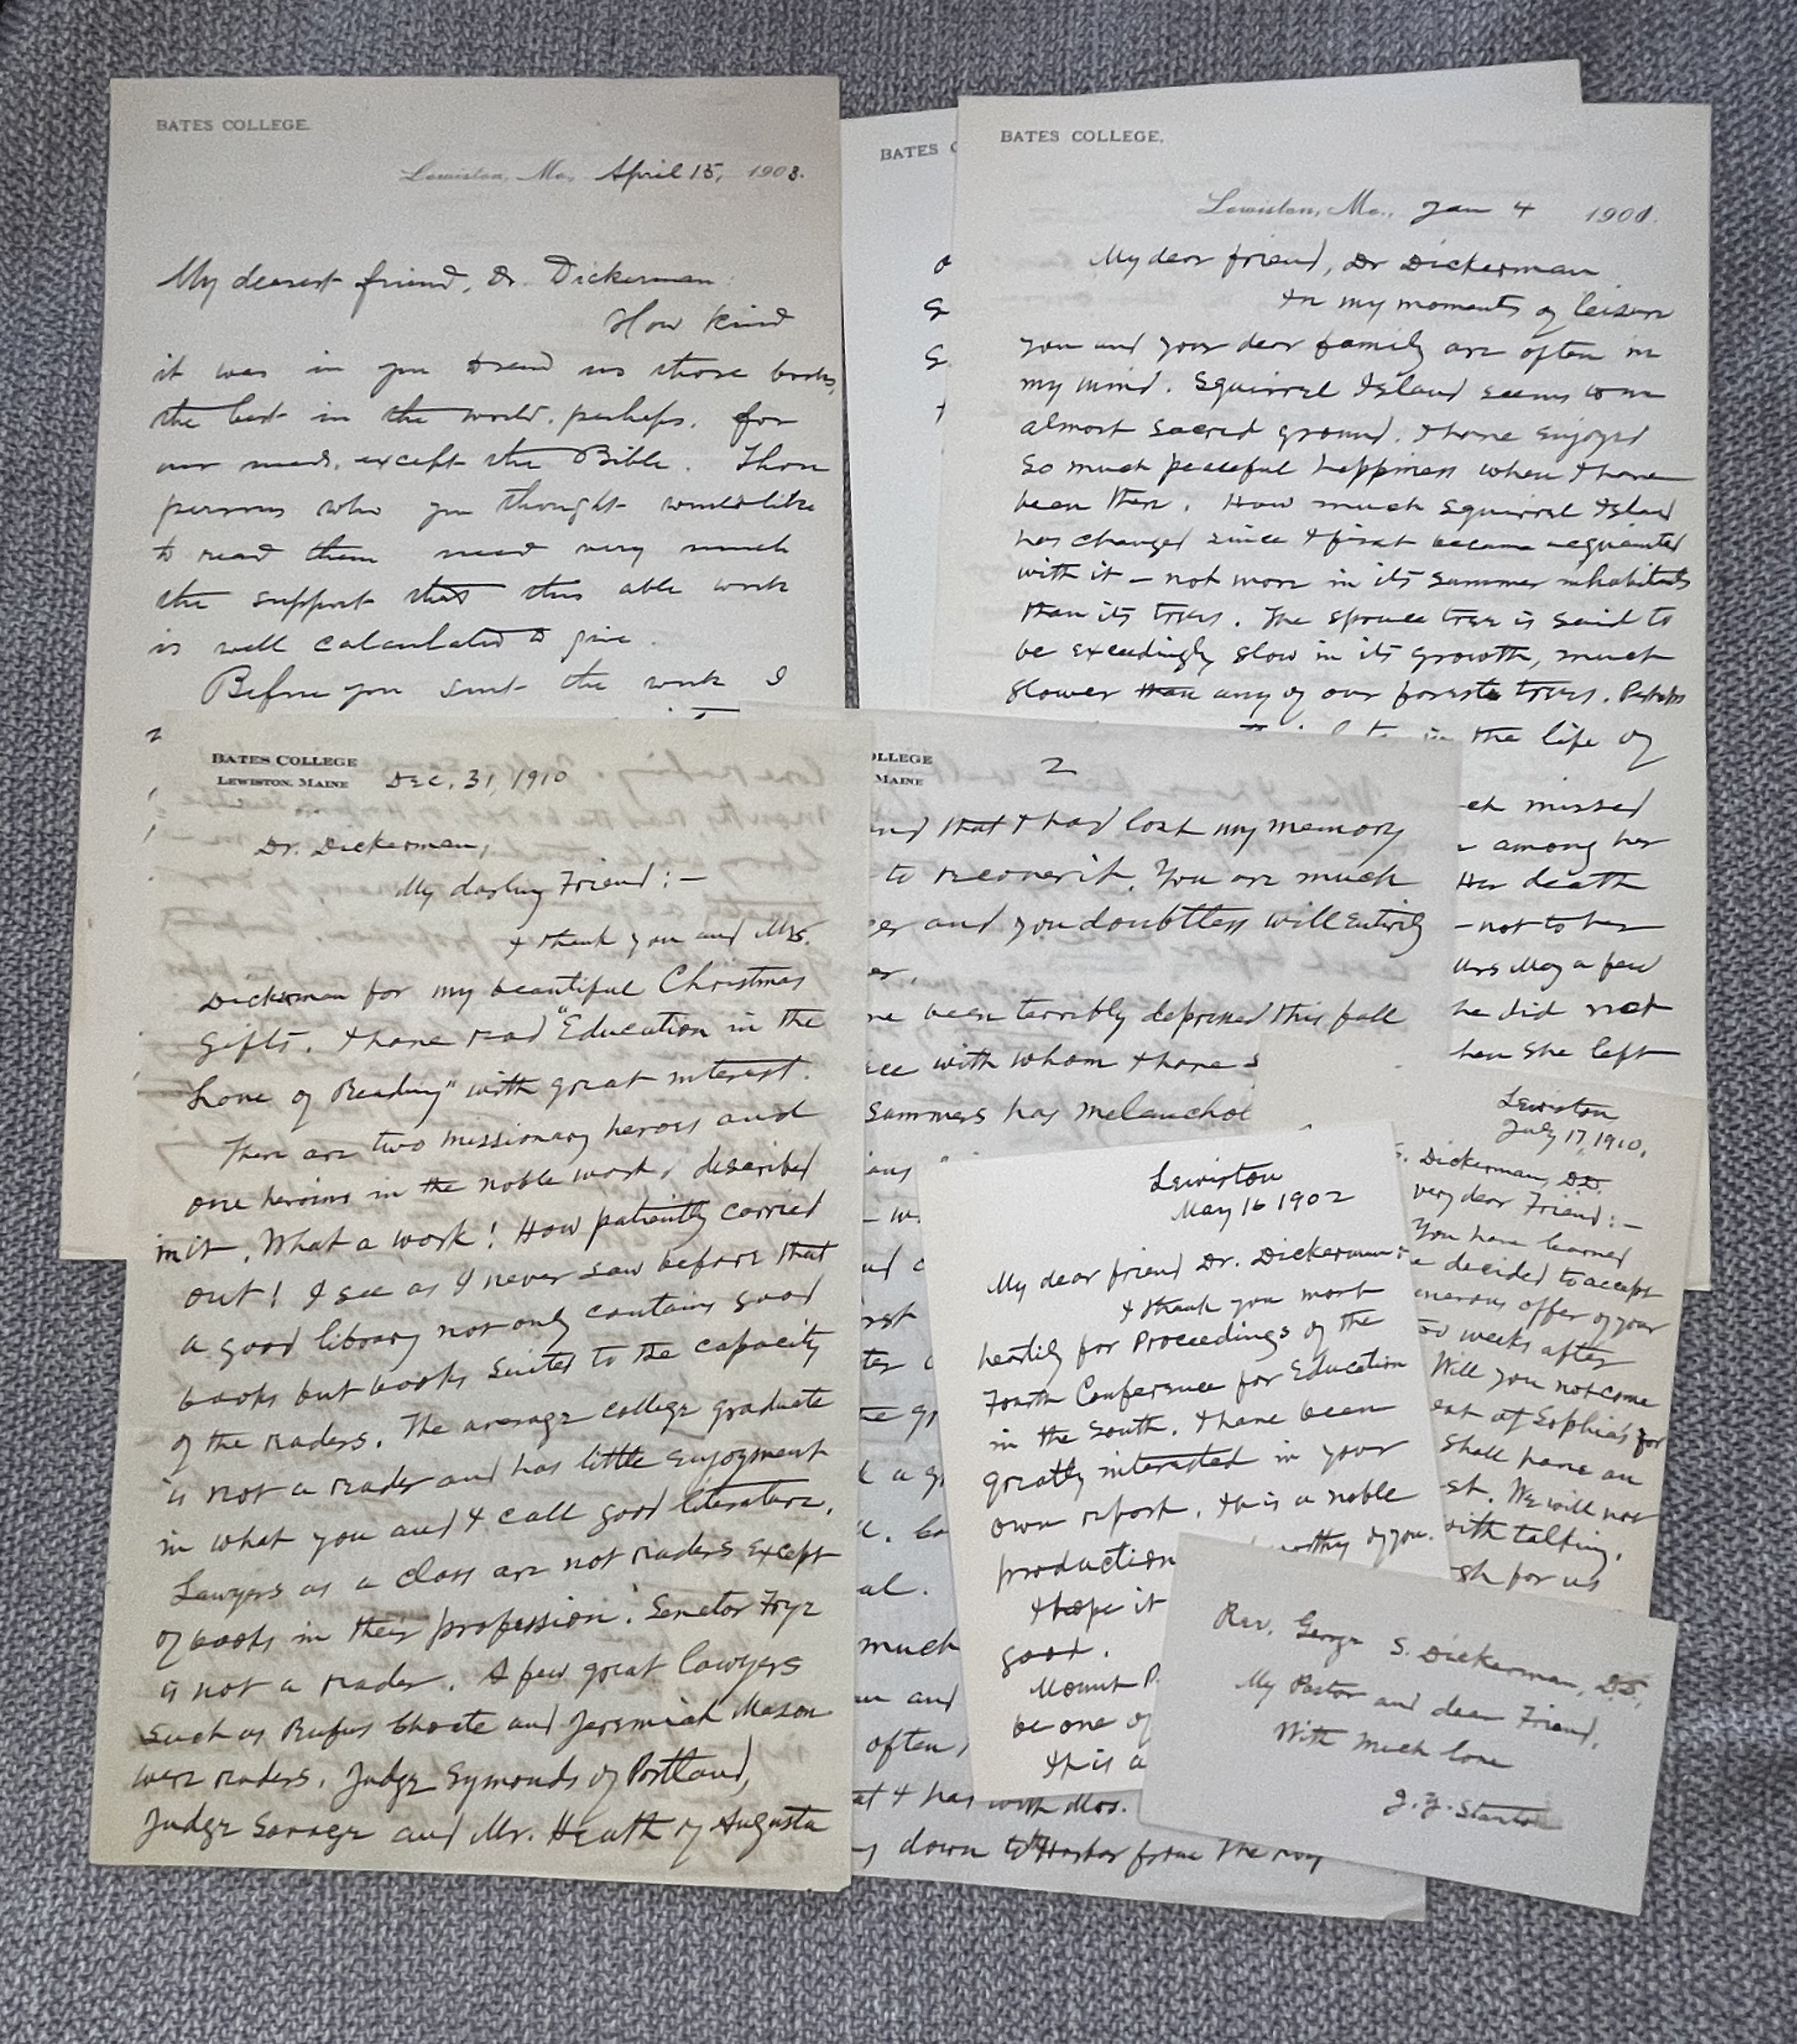 BATES COLLEGE.
Lewiston, Me., April 15, 1903.
My dearest friend, Dr. Dickerman
How kind
it was in you to send us those books,
the best in the world, perhaps, for
our needs, except the Bible. Those
persons who you thought would like
to read them need very much
the support that this able work
is well calculated to give.
Before you sent the work I
BATES C
BATES COLLEGE,
Lewiston, Me., Jan 4 1901.
My dear friend, Dr Dickerman
In my moments of leisure
you and your dear family are often in
my mind. Squirrel Island seems to me
almost sacred ground. I have enjoyed
so much peaceful happiness when I have
been there. How much Squirrel Island
has changed since I first became acquainted
with it – not more in its summer inhabitants
than its trees. The spruce tree is said to
be exceedingly slow in its growth, much
slower than any of our forest trees. Perhaps
in the life of
missed
among her
Her death
– not to her
Mrs May a few
he did not
she left
BATES COLLEGE
LEWISTON, MAINE
Dec. 31, 1910
Dr. Dickerman,
My darling Friend : –
I thank you and Mrs.
Dickerman for my beautiful Christmas
gifts. I have read "Education in the
Love of Reading" with great interest.
There are two missionary heroes and
one heroine in the noble work described
in it. What a work! How patiently carried
out! I see as I never saw before that
a good library not only contains good
books but books suited to the capacity
of the readers. The average college graduate
is not a reader and has little enjoyment
in what you and I call good literature.
Lawyers as a class are not readers except
of books in their profession. Senator Frye
is not a reader. A few great lawyers
such as Rufus Choate and Jeremiah Mason
were readers. Judge Symonds of Portland,
Judge Savage and Mr. Heath of Augusta
OLLEGE
MAINE
2
and that I had lost my memory
to recover it. You are much
and you doubtless will entirely
been terribly depressed this fall
with whom I have s
summers has melanchol
much
and
often,
at I had with Mrs.
down to the Harbor from the
Lewiston
May 16 1902
My dear friend Dr. Dickerman:
I thank you most
heartily for Proceedings of the
Fourth Conference for Education
in the South. I have been
greatly interested in your
own report. It is a noble
production worthy of you.
I hope it
good.
Mount P
be one of
It is a
Lewiston
July 17, 1910.
Dickerman, D.D.
very dear Friend : –
You have learned
decided to accept
generous offer of your
weeks after
Will you not come
at Sophia's for
shall have an
We will not
with talking.
for us
Rev. George S. Dickerman, D.D.,
My Pastor and dear Friend,
With much love
J. Y. Stanton